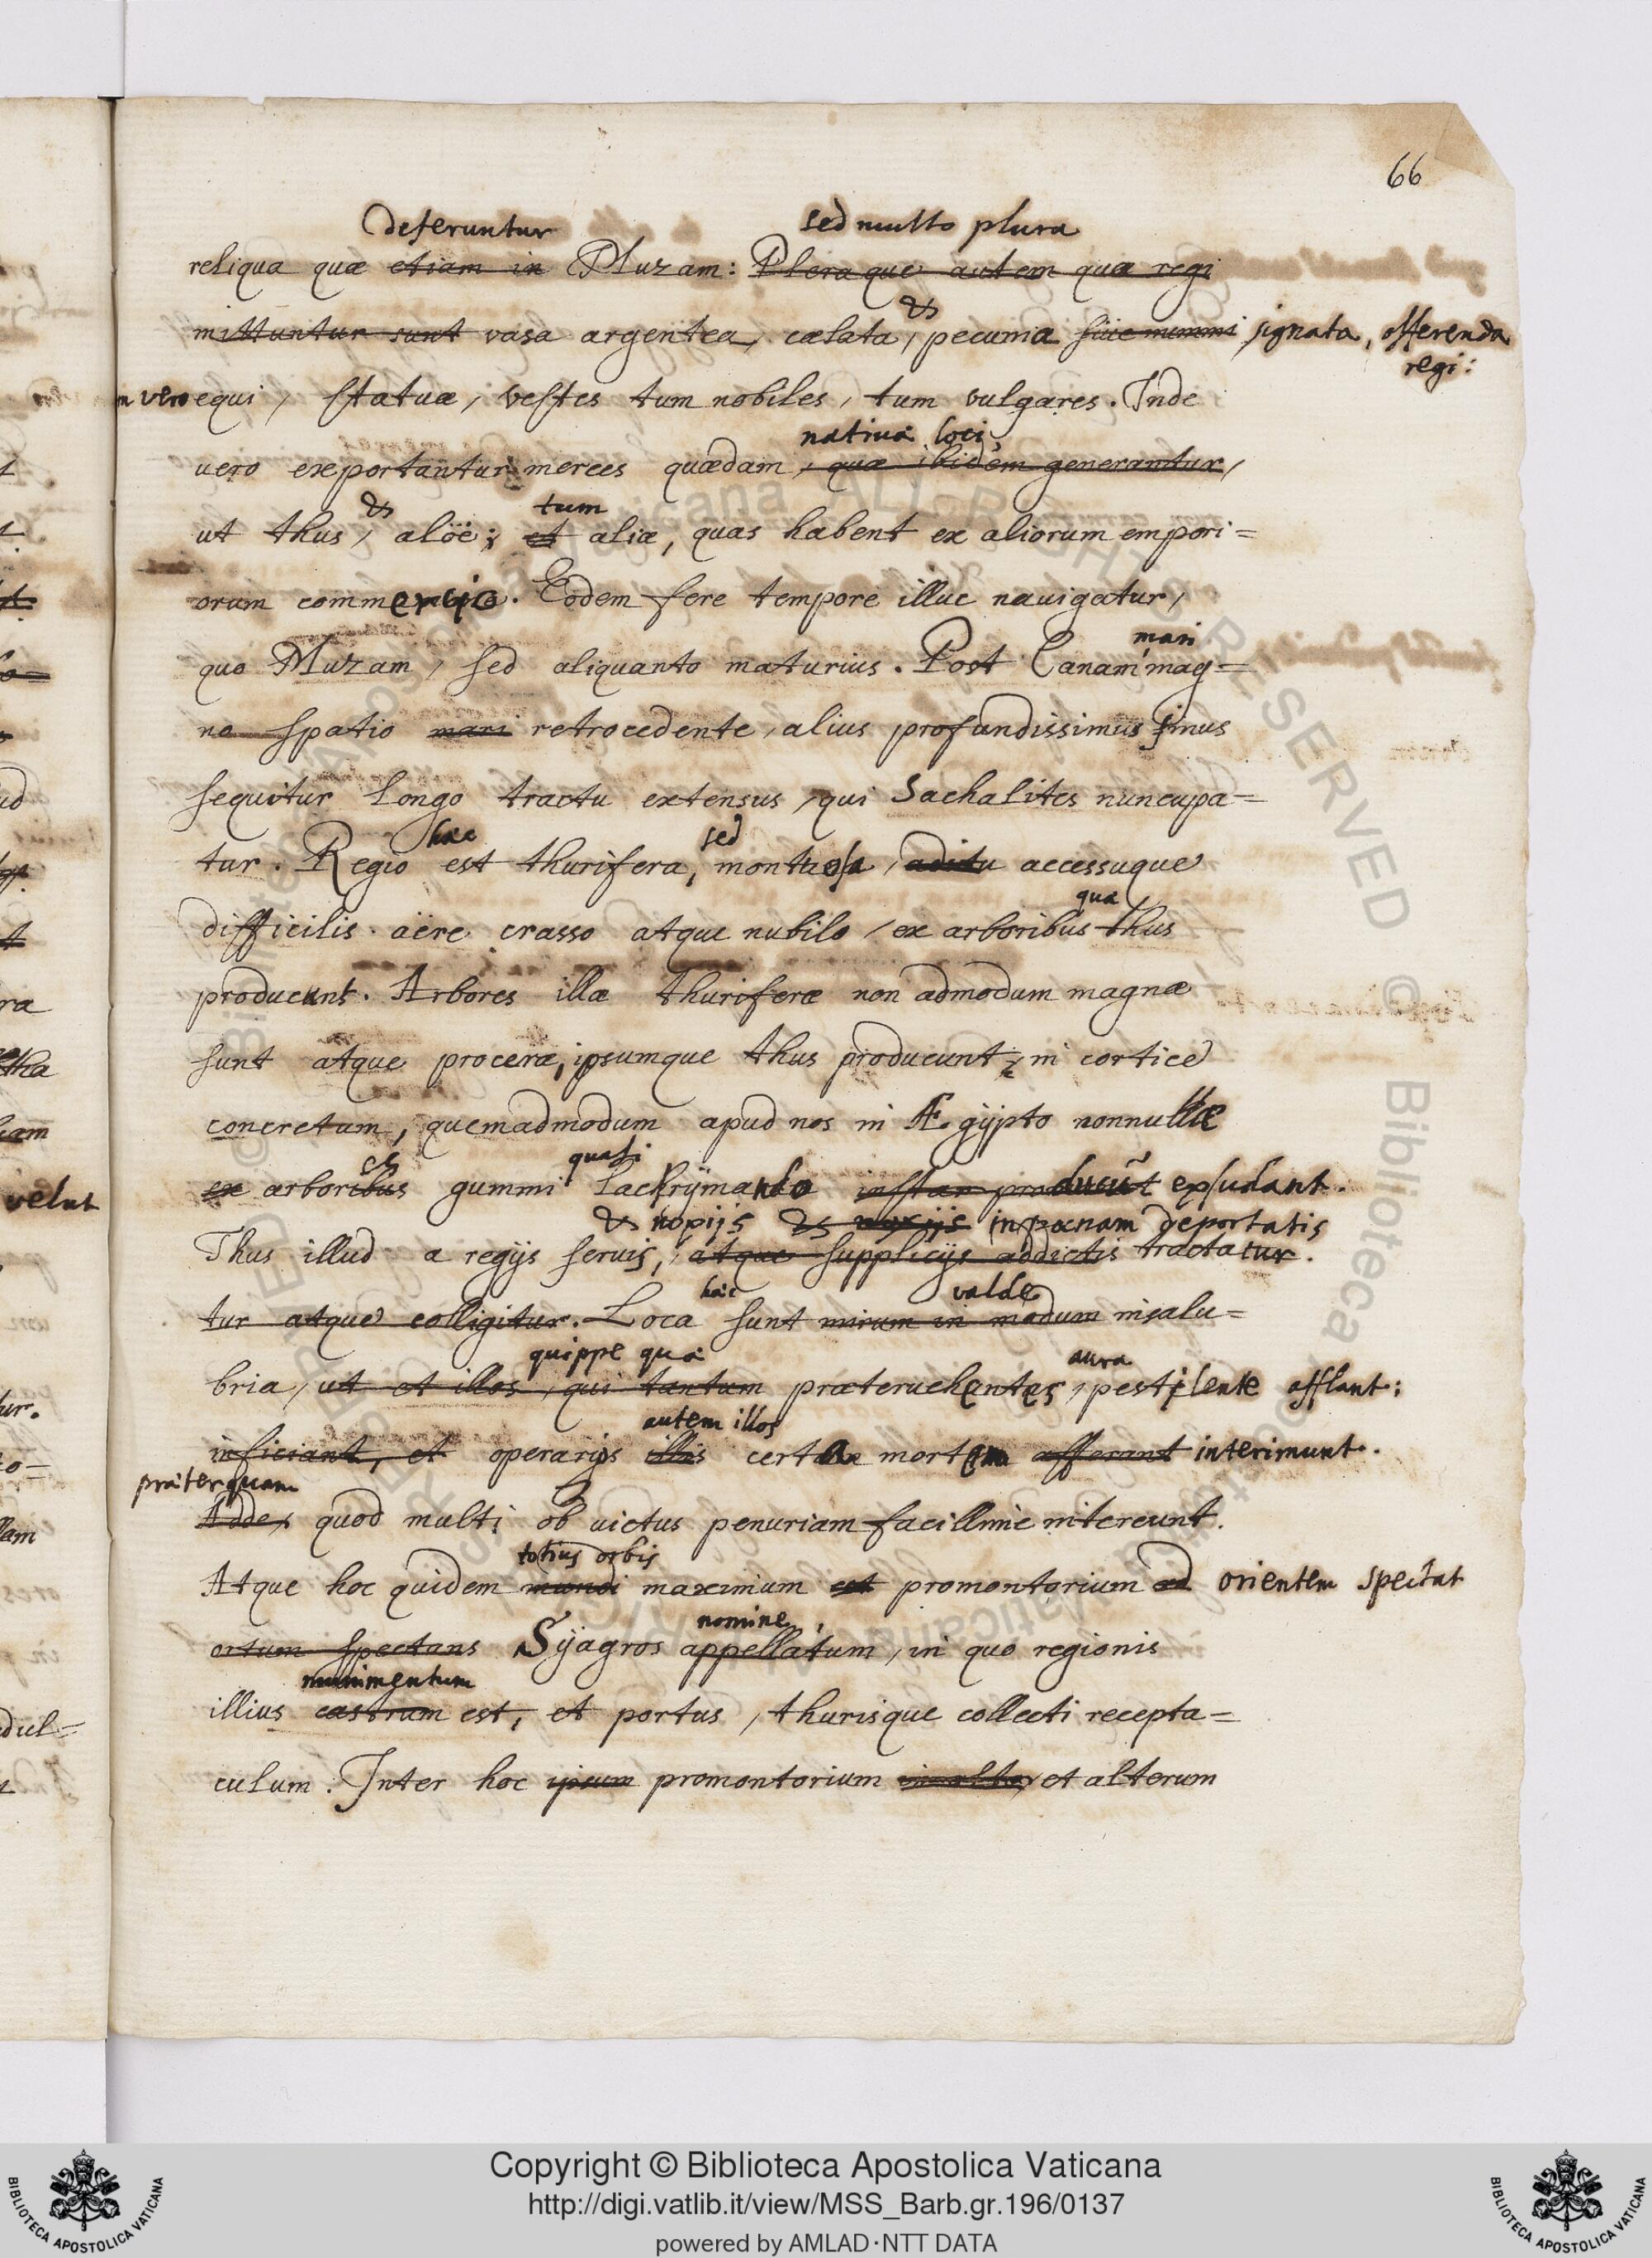 66
deferuntur sed multo plura
reliqua quæ etiam in Muzam: Pleraque autem quæ regi
&
mittuntur sunt vasa argentea, cælata, pecunia siue nummi signata, offerenda
regi:
vero equi, statuæ, vestes tum nobiles, tum vulgares. Inde
natiua loci,
uero exportantur merces quædam, quæ ibidem generantur,
& tum
ut thus, aloë; et aliæ, quas habent ex aliorum empori=
orum commercio. Eodem fere tempore illuc nauigatur,
mari
quo Muzam, sed aliquanto maturius. Post Canam mag=
no spatio mari retrocedente, alius profundissimus sinus
sequitur longo tractu extensus, qui Sachalites nuncupa=
hæc sed
tur. Regio est thurifera, montuosa, aditu accessuque
qua
difficilis. aëre crasso atque nubilo, ex arboribus thus
producunt. Arbores illæ thuriferæ non admodum magnæ
sunt atque proceræ, ipsumque thus producunt, in cortice
concretum, quemadmodum apud nos in Ægypto nonnullæ
es quasi
velut
ex arboribus gummi lachrymando instar producūt exsudant.
& nopijs & noxijs in pœnam deportatis
Thus illud a regijs seruis, atque supplicijs addictis tractatur.
hæc valde
tur atque colligitur. Loca sunt mirum in modum insalu=
quippe quæ aura
bria, ut et illos, qui tantum præteruehentes, pestilente afflant;
autem illos
inficiant, et operarijs illis certa mortem afferant interimunt.
præterquam
Adde, quod multi ob uictus penuriam facillime intereunt.
totius orbis
Atque hoc quidem mundi maximum est promontorium ad orientem spectat
nomine,
ortum spectans Syagros appellatum, in quo regionis
munimentum
illius castrum est, et portus, thurisque collecti recepta=
culum. Inter hoc ipsum promontorium et alterum
Copyright © Biblioteca Apostolica Vaticana
http://digi.vatlib.it/view/MSS_Barb.gr.196/0137
powered by AMLAD·NTT DATA
BIBLIOTECA APOSTOLICA VATICANA
BIBLIOTECA APOSTOLICA VATICANA